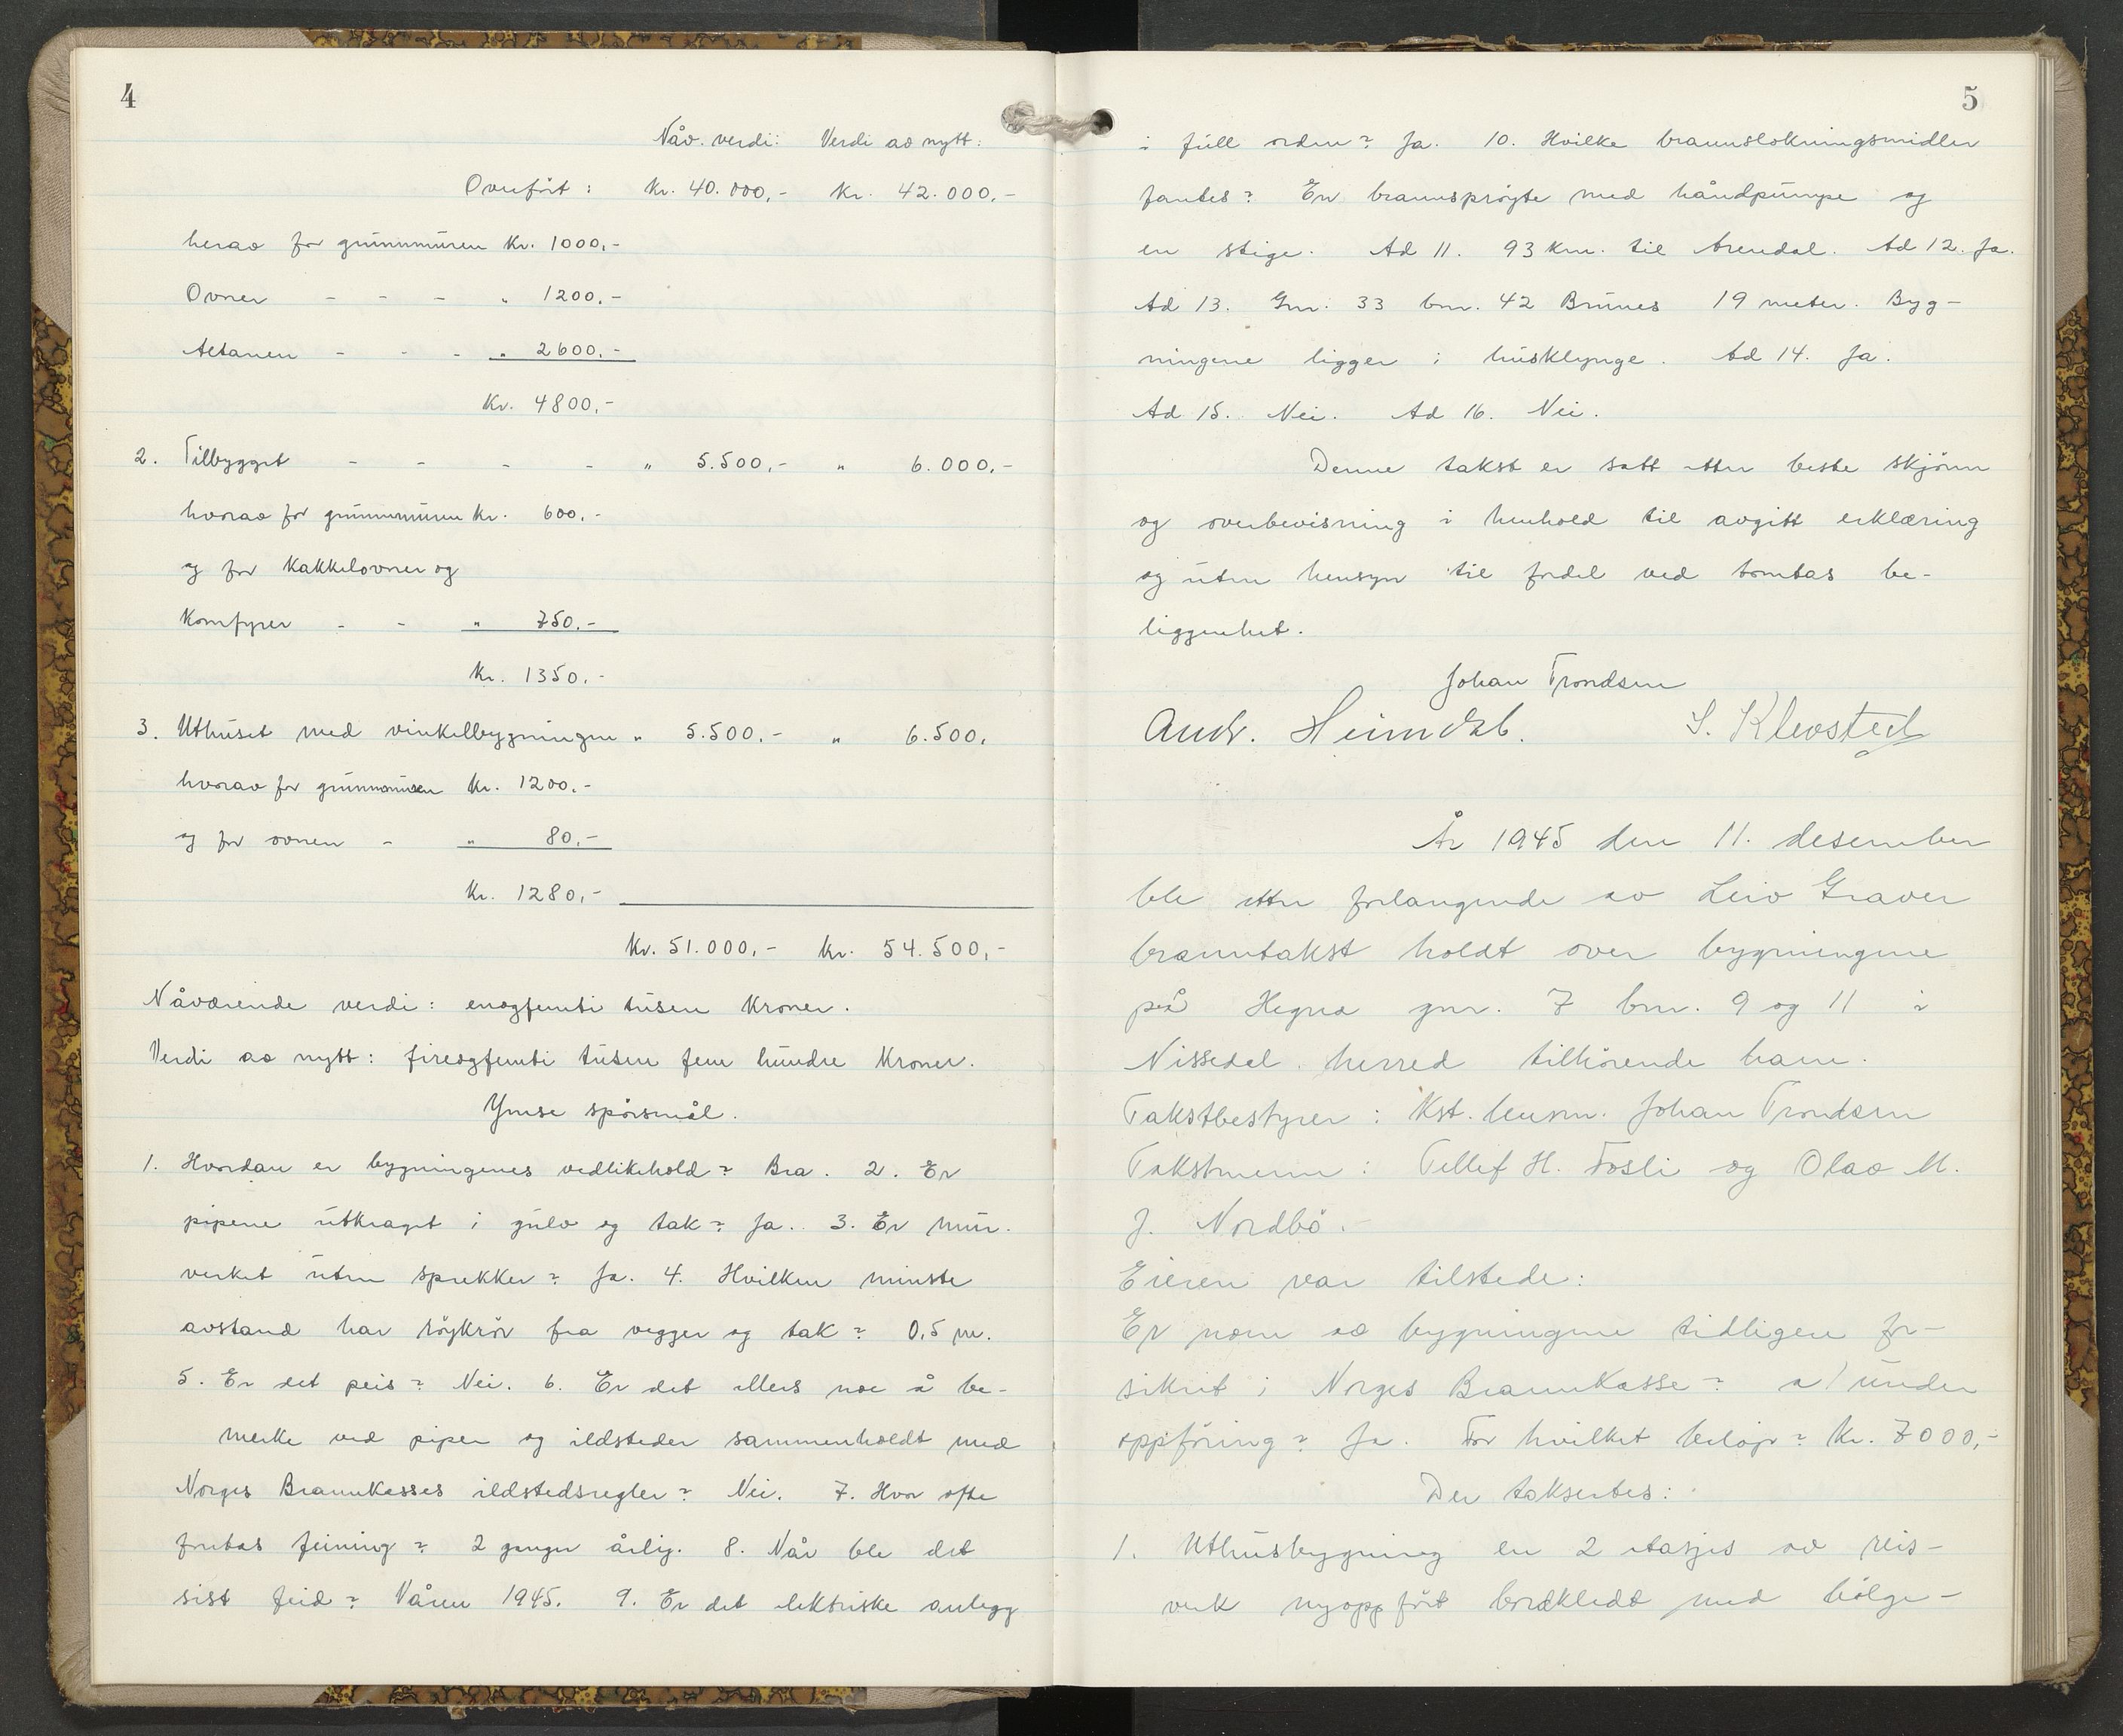 4
Nåv. verdi: Verdi av nytt:
Overfört: kr. 40.000,- kr. 42.000,-
herav for grunnmuren kr. 1000,-
Ovner - - - " 1200,-
Altanen - - - " 2600,-
kr. 4800,-
2. Tilbygget - - - - " 5.500,- " 6.000,-
hvorav for grunnmuren kr. 600,-
og for kakkelovner og
komfyrer - - " 750,-
kr. 1350,-
3. Uthuset med vinkelbygningen " 5.500,- " 6.500,
hvorav for grunnmuren kr. 1200,-
og for ovnen - " 80,-
kr. 1280,-
kr. 51.000,- kr. 54.500,-
Nåværende verdi: enogfemti tusen kroner.
Verdi av nytt: fireogfemti tusen fem hundre kroner.
Ymse spörsmål.
1. Hvordan er bygningenes vedlikehold? Bra. 2. Er
pipene utkraget i gulv og tak? Ja. 3. Er mur-
verket uten sprekker? Ja. 4. Hvilken minste
avstand har röykrör fra vegger og tak? 0,5 m.
5. Er det peis? Nei. 6. Er det ellers noe å be-
merke ved piper og ildsteder sammenholdt med
Norges Brannkasses ildstedsregler? Nei. 7. Hvor ofte
foretas feiing? 2 ganger årlig. 8. Når ble det
sist feid? Våren 1945. 9. Er det elektriske anlegg
5
i full orden? Ja. 10. Hvilke brannslokningsmidler
fantes? En brannspröyte med håndpumpe og
en stige. Ad 11. 93 km. til Arendal. Ad 12. Ja.
Ad 13. Gnr. 33 bnr. 42 Brunes 19 meter. Byg-
ningene ligger i husklynge. Ad 14. Ja.
Ad 15. Nei. Ad 16. Nei.
Denne takst er satt etter beste skjönn
og overbevisning i henhold til avgitt erklæring
og uten hensyn til fordel ved tomtas be-
liggenhet.
Johan Trondsen
Andr. Heimdal. S. Klevsted
År 1945 den 11. desember
ble etter forlangende av Leiv Graver
branntakst holdt over bygningene
på Hegna gnr. 7 bnr. 9 og 11 i
Nissedal herred tilhörende ham.
Takstbestyrer: Kst. lensm. Johan Trondsen
Takstmenn: Tellef H. Fosli og Olav M.
J. Nordbö.
Eieren var tilstede:
Er noen av bygningene tidligere for-
sikret i Norges Brannkasse? a/ under
oppföring? Ja. For hvilket belöp? Kr. 7000,-
Der taksertes:
1. Uthusbygning en 2 etasjes av reis-
verk nyoppfört bordkledt med bölge-